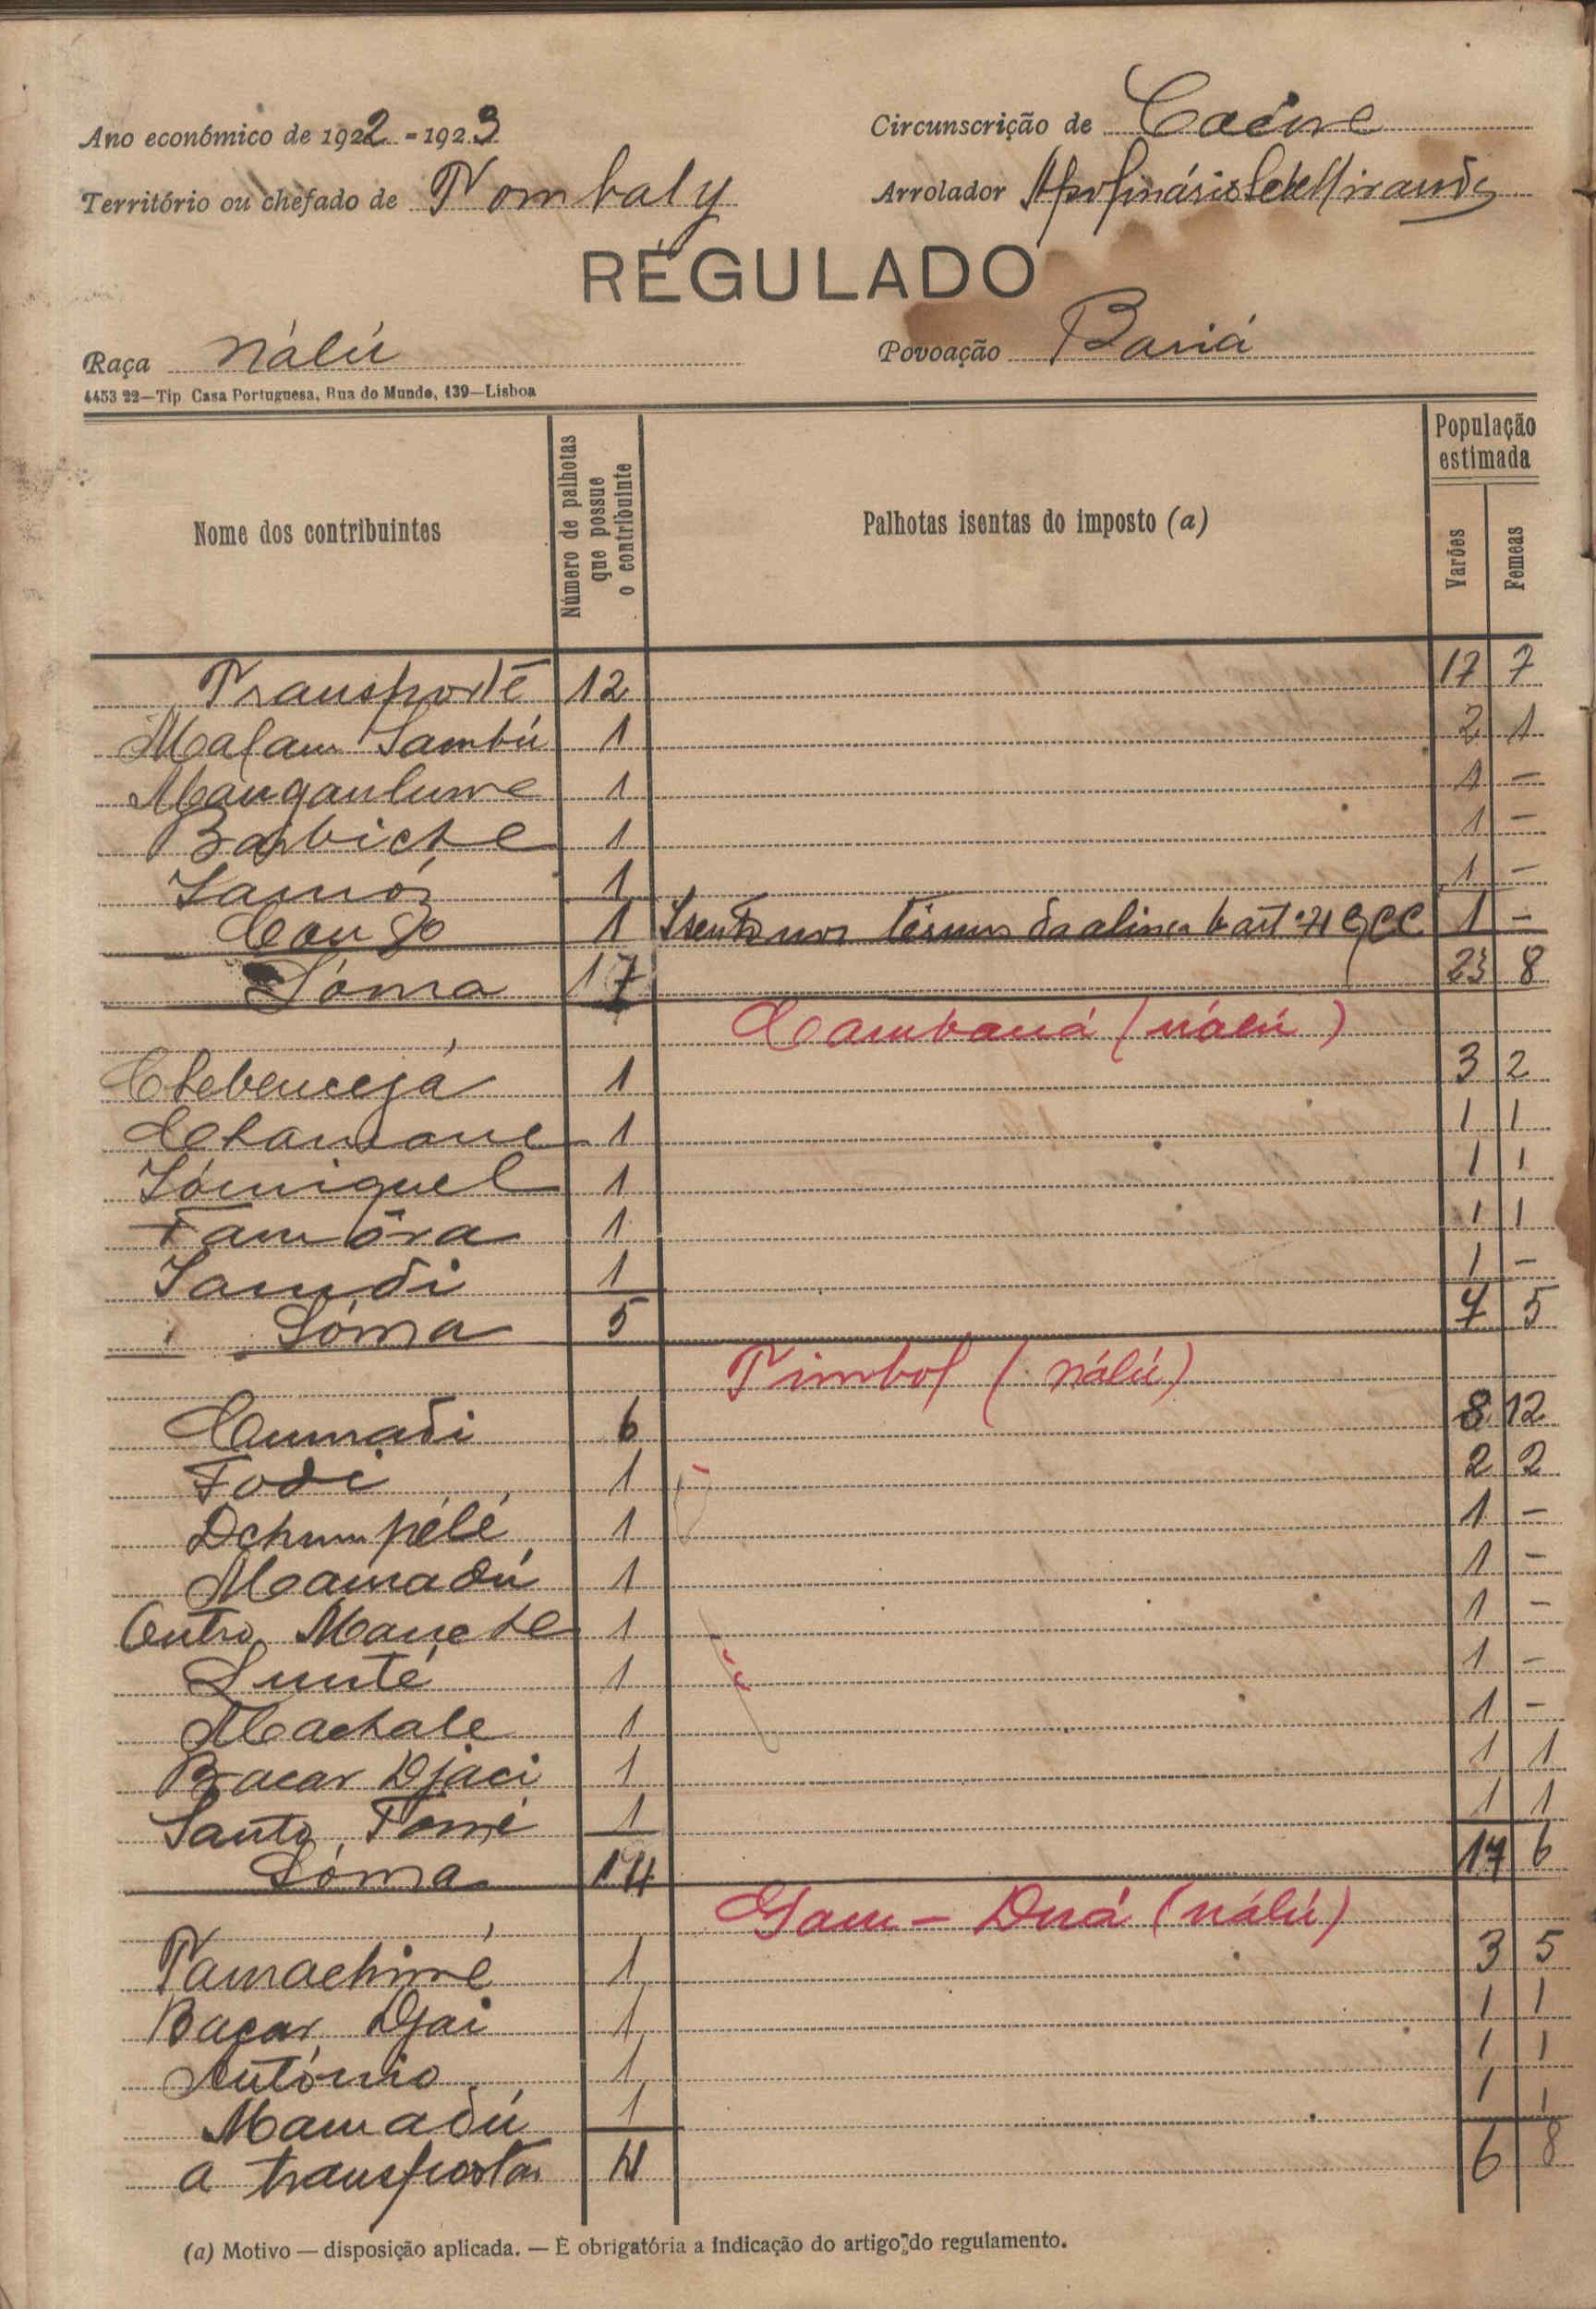 Ano económico de 1922 - 1923
Circunscrição de Cacine
Território ou chefado de Tombaly
Arrolador
REGULADO
Raça nálú
Povoação Baniá
4453 22—Tip Casa Portuguesa, Rua do Mundo, 139—Lisboa
Nome dos contribuintes
Número de palhotas que possue o contribuinte
Palhotas isentas do imposto (a)
População estimada
Varões
Femeas
Transporte 12 17 7
Malam Sambú 1 2 1
Mangaulume 1 1 —
Barbiche 1 1 —
1 1 —
Congo 1 Isento nos termos da alinea b artº 71 1 —
Sóma 17 23 8
Cambaná (nálú)
Chebenceja 1 3 2
1 1 1
Sómiguel 1 1 1
Tambôra 1 1 1
Samdi 1 1 —
Sóma 5 7 5
Timbol (nálú)
Cumadi 6 8 12
Fodi 1 2 2
Dchumpélé 1 1 —
Mamadú 1 1 —
Centro Manche 1 1 —
Sunté 1 1 —
Machale 1 1 —
Bacar Djaci 1 1 1
Santo Tomé 1 1 1
Sóma 14 17 6
Gam - Duá (nálú)
Tamachimé 1 3 5
Bacar Djai 1 1 1
António 1 1 1
Mamadú 1 1 1
a transportar 4 6 8
(a) Motivo — disposição aplicada. — É obrigatória a indicação do artigo do regulamento.